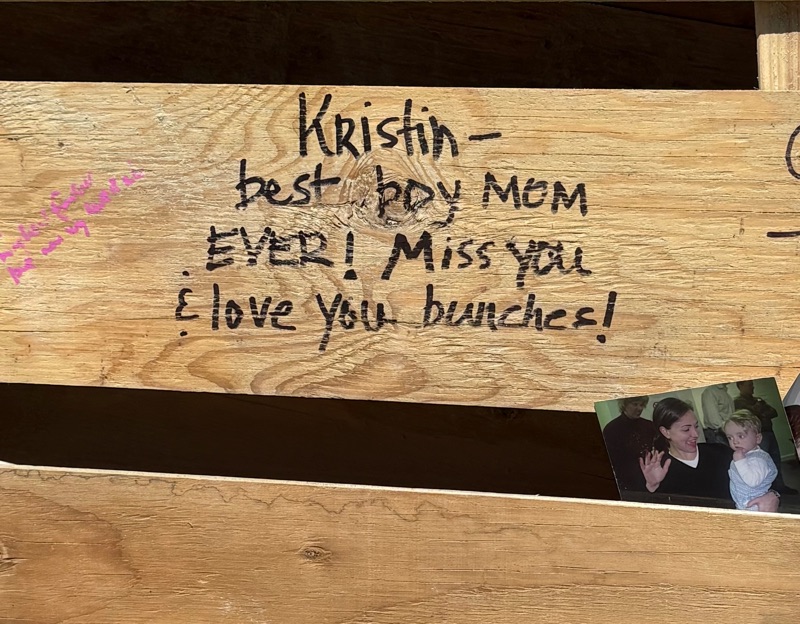 Kristin-
best boy MOM
EVER! Miss you
& love you bunches!